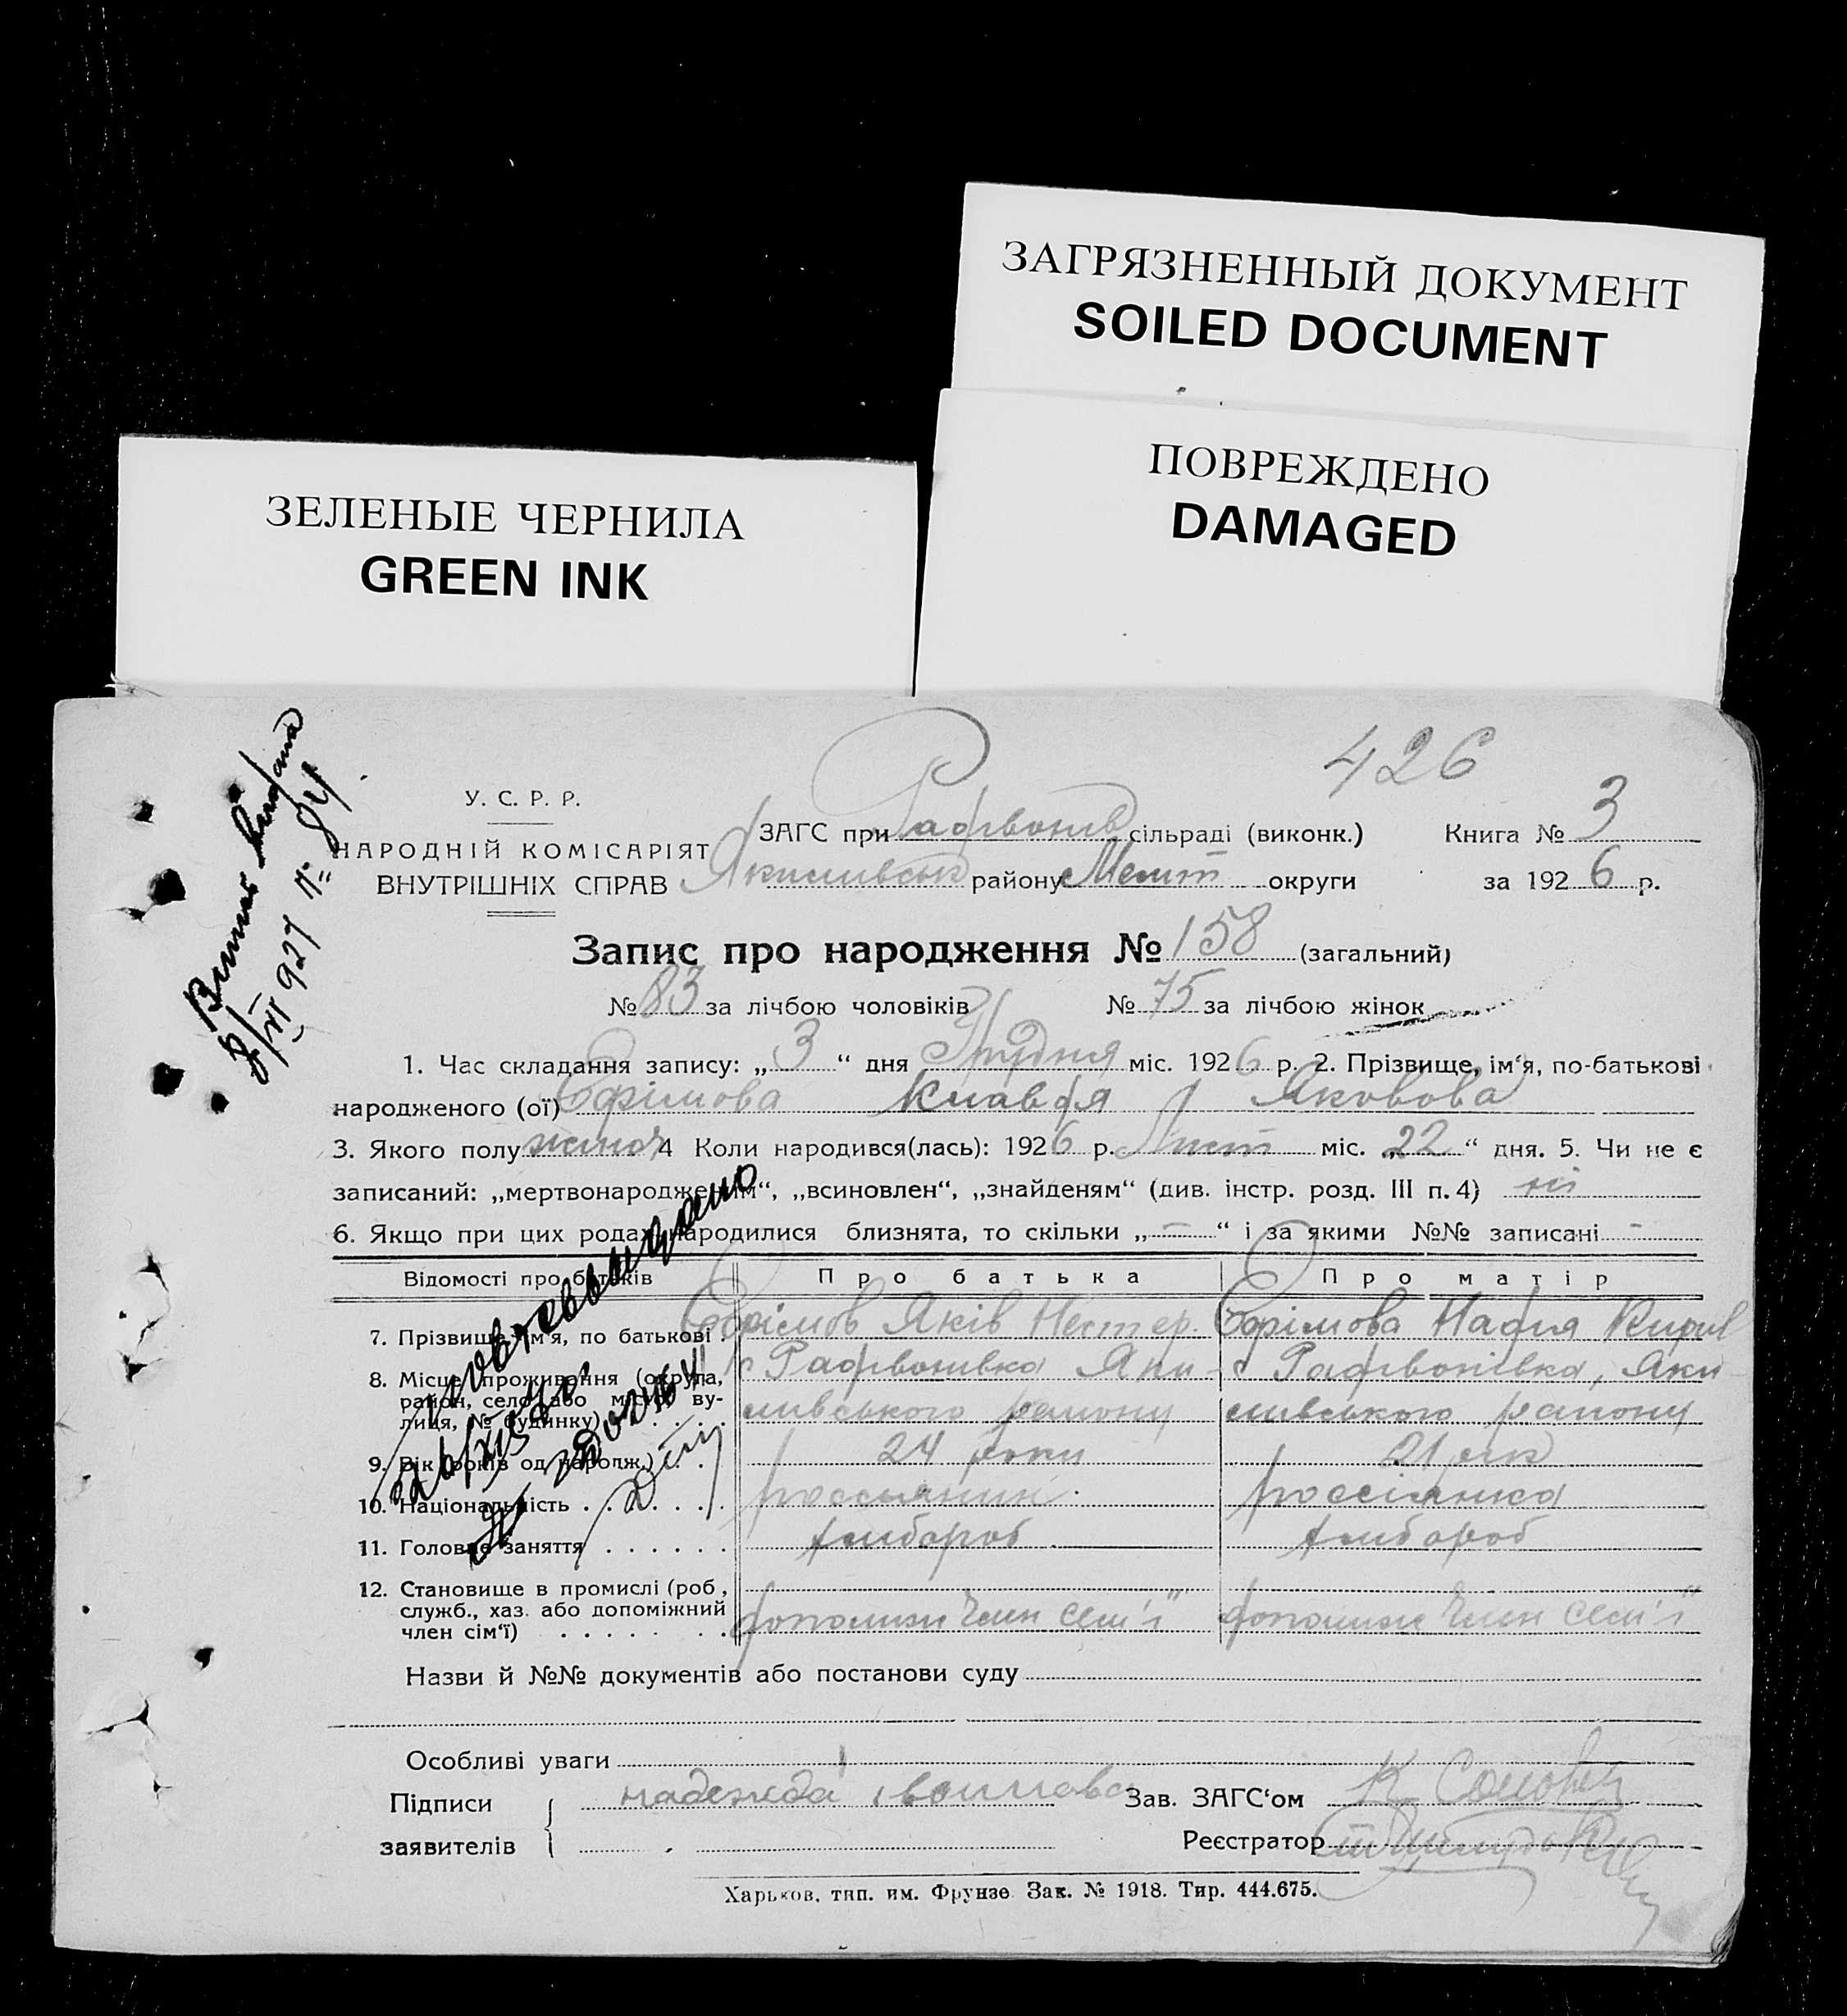 ЗАГРЯЗНЕННЫЙ ДОКУМЕНТ
SOILED DOCUMENT
ПОВРЕЖДЕНО
DAMAGED
ЗЕЛЕНЫЕ ЧЕРНИЛА
GREEN INK
426
У. С. Р. Р.
НАРОДНІЙ КОМІСАРІЯТ
ВНУТРІШНІХ СПРАВ
ЗАГС при сільраді (виконк.) Книга № 3
району Меліт округи за 1926 р.
Запис про народження № 158 (загальний)
№ 83 за лічбою чоловіків № 75 за лічбою жінок
1. Час складання запису: „3“ дня Грудня міс. 1926 р. 2. Прізвище, ім‘я, по-батькові
народженого (ої) Єфімова Клавдя Яковова
3. Якого полу жіноч 4 Коли народився(лась): 1926 р. Лист міс. „22“ дня. 5. Чи не є
записаний: „мертвонародженим“, „всиновлен“, „знайденям“ (див. інстр. розд. III п. 4) ні
6. Якщо при цих родах народилися близнята, то скільки „—“ і за якими №№ записані —
Відомості про батьків Про батька Про матір
7. Прізвище, ім‘я, по батькові . Єфімов Яків Нестер. Єфімова Надія Кирил
8. Місце проживання (округа,
район, село або місто, ву-
лиця, № будинку)
району району
9. Вік (років од народж.) . . . 24 роки 21 рік
10. Національність . . . . . . россіянин. россіянка
11. Головне заняття . . . . . . хлібороб хлібороб
12. Становище в промислі (роб,
служб., хаз. або допоміжний
член сім‘ї) . . . . . . . допоміжн член сем'ї допоміжн член сем'ї
Назви й №№ документів або постанови суду
Особливі уваги
Підписи надежда
заявителів
Зав. ЗАГС‘ом
Реєстратор
Харьков, тип. им. Фрунзе Зак. № 1918. Тир. 444.675.